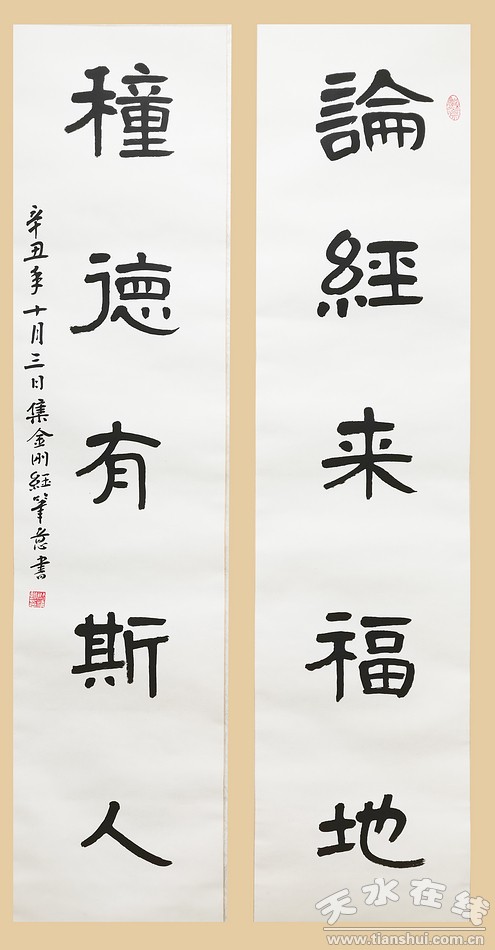 論經来福地
穜德有斯人
辛丑年十月三日集金刚経筆意書
天水在线
www.tianshui.com.cn